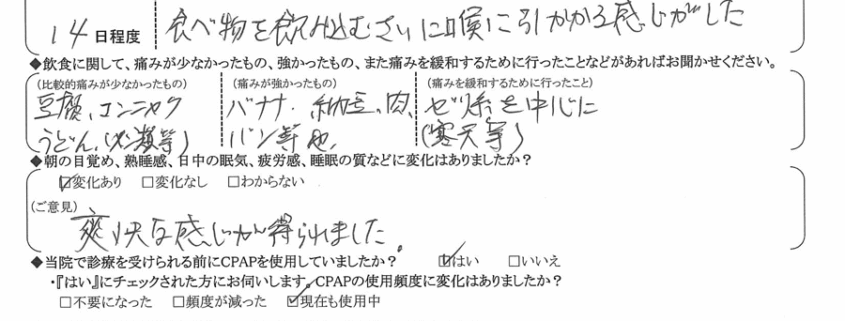 14日程度 食べ物を飲み込むさいに喉に引かかる感じがした
◆飲食に関して、痛みが少なかったもの、強かったもの、また痛みを緩和するために行ったことなどがあればお聞かせください。
(比較的痛みが少なかったもの) (痛みが強かったもの) (痛みを緩和するために行ったこと)
豆腐、コンニャク バナナ、納豆、肉、 ゼリ系を中心に
うどん、(麺類等) パン等他、 (寒天等)
◆朝の目覚め、熟睡感、日中の眠気、疲労感、睡眠の質などに変化はありましたか?
☑変化あり □変化なし □わからない
(ご意見)
爽快な感じが得られました。
◆当院で診療を受けられる前にCPAPを使用していましたか? ☑はい □いいえ
・『はい』にチェックされた方にお伺いします。CPAPの使用頻度に変化はありましたか?
□不要になった □頻度が減った ☑現在も使用中